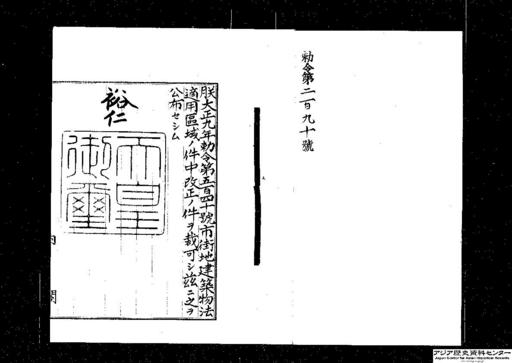 勅令第二百九十號
朕大正九年勅令第五百四十號市街地建築物法
適用區域ノ件中改正ノ件ヲ裁可シ茲ニ之ヲ
公布セシム
裕仁
天皇
御璽
内閣
アジア歴史資料センター
Japan Center for Asian Historical Records